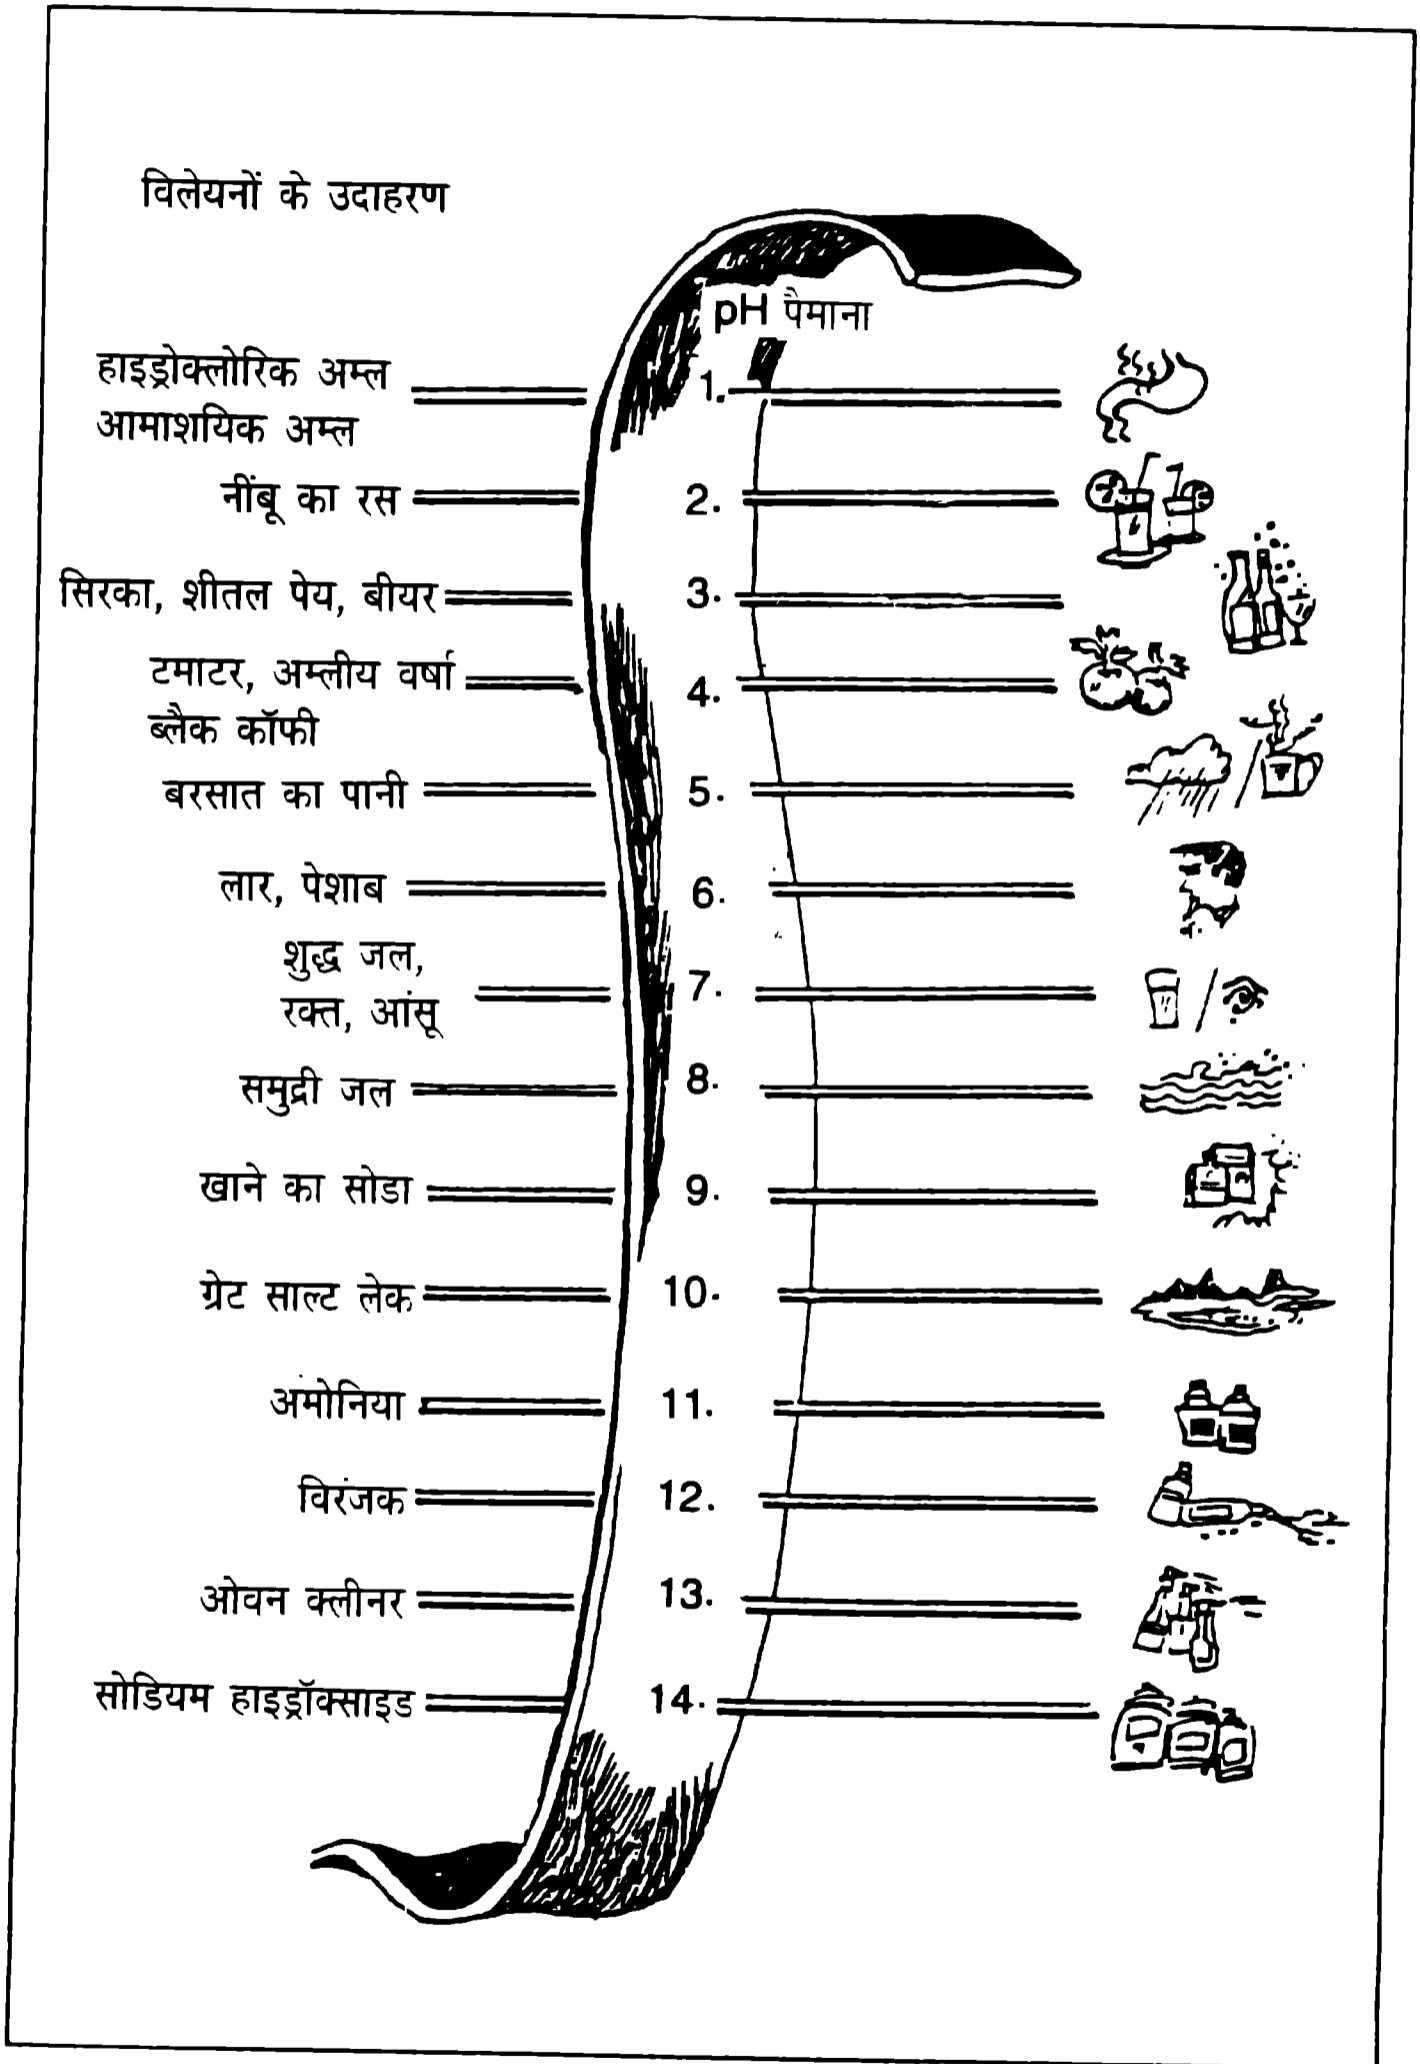 विलेयनों के उदाहरण
pH पैमाना
हाइड्रोक्लोरिक अम्ल
आमाशयिक अम्ल
1.
नींबू का रस 2.
सिरका, शीतल पेय, बीयर 3.
टमाटर, अम्लीय वर्षा 4.
ब्लैक कॉफी
बरसात का पानी 5.
लार, पेशाब 6.
शुद्ध जल,
रक्त, आंसू 7.
समुद्री जल 8.
खाने का सोडा 9.
ग्रेट साल्ट लेक 10.
अमोनिया 11.
विरंजक 12.
ओवन क्लीनर 13.
सोडियम हाइड्रॉक्साइड 14.